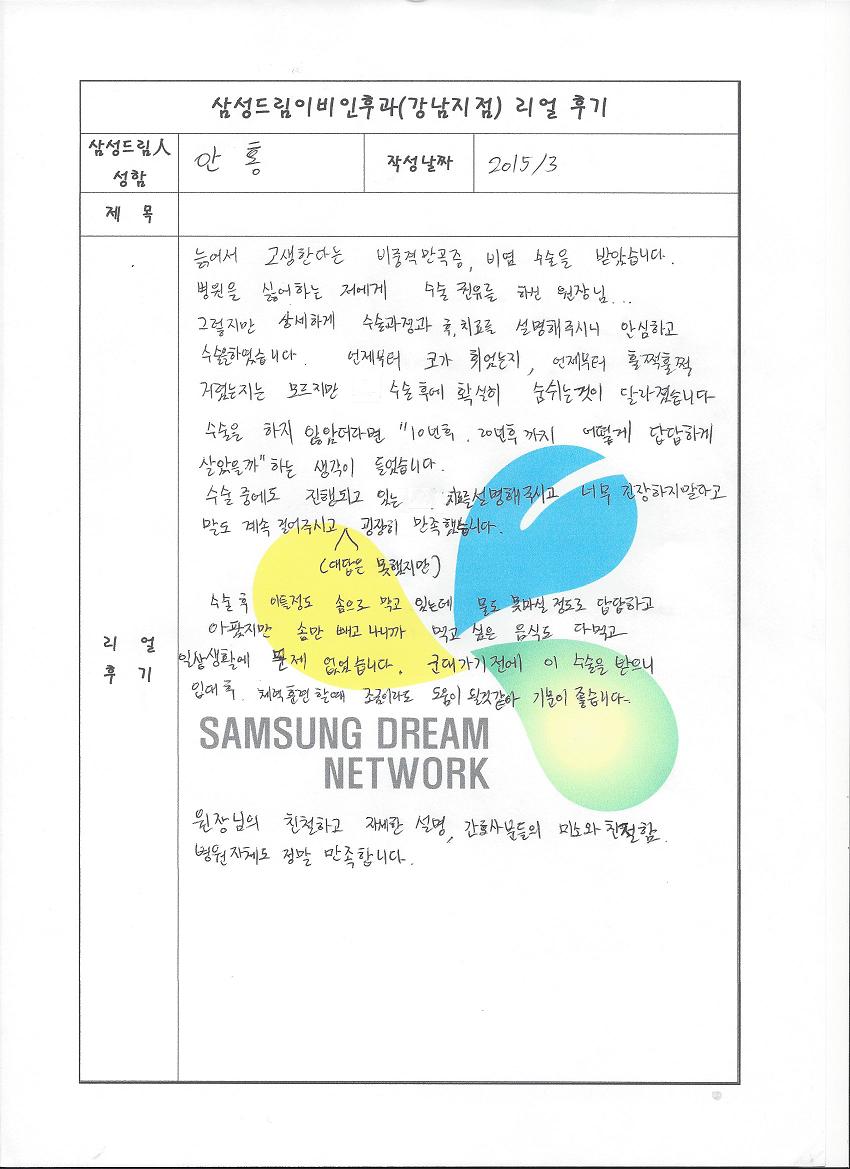 삼성드림이비인후과(강남지점) 리얼 후기
삼성드림人 성함
안 홍
작성날짜
2015/3
제 목
리 얼 후 기
늙어서 고생한다는 비중격만곡증, 비염 수술을 받았습니다.
병원을 싫어하는 저에게 수술 권유를 하신 원장님...
그렇지만 상세하게 수술과정과 후,치료를 설명해주시니 안심하고
수술을하였습니다. 언제부터 코가 휘었는지, 언제부터 훌쩍훌쩍
거렸는지는 모르지만 수술후에 확실히 숨쉬는것이 달라졌습니다
수술을 하지 않았더라면 "10년후, 20년후까지 어떻게 답답하게
살았을까"하는 생각이 들었습니다.
수술 중에도 진행되고 있는 치료를설명해주시고 너무 긴장하지말라고
말도 계속 걸어주시고 굉장히 만족했습니다.
(대답은 못했지만)
수술 후 이틀정도 솜으로 막고 있는데 물도 못마실 정도로 답답하고
아팠지만 솜만 빼고 나니까 먹고 싶은 음식도 다먹고
일상생활에 문제 없었습니다. 군대가기 전에 이 수술을 받으니
입대 후, 체력훈련 할때 조금이라도 도움이 될것같아 기분이 좋습니다.
SAMSUNG DREAM
NETWORK
원장님의 친절하고 자세한 설명, 간호사분들의 미소와 친절함.
병원자체도 정말 만족합니다.